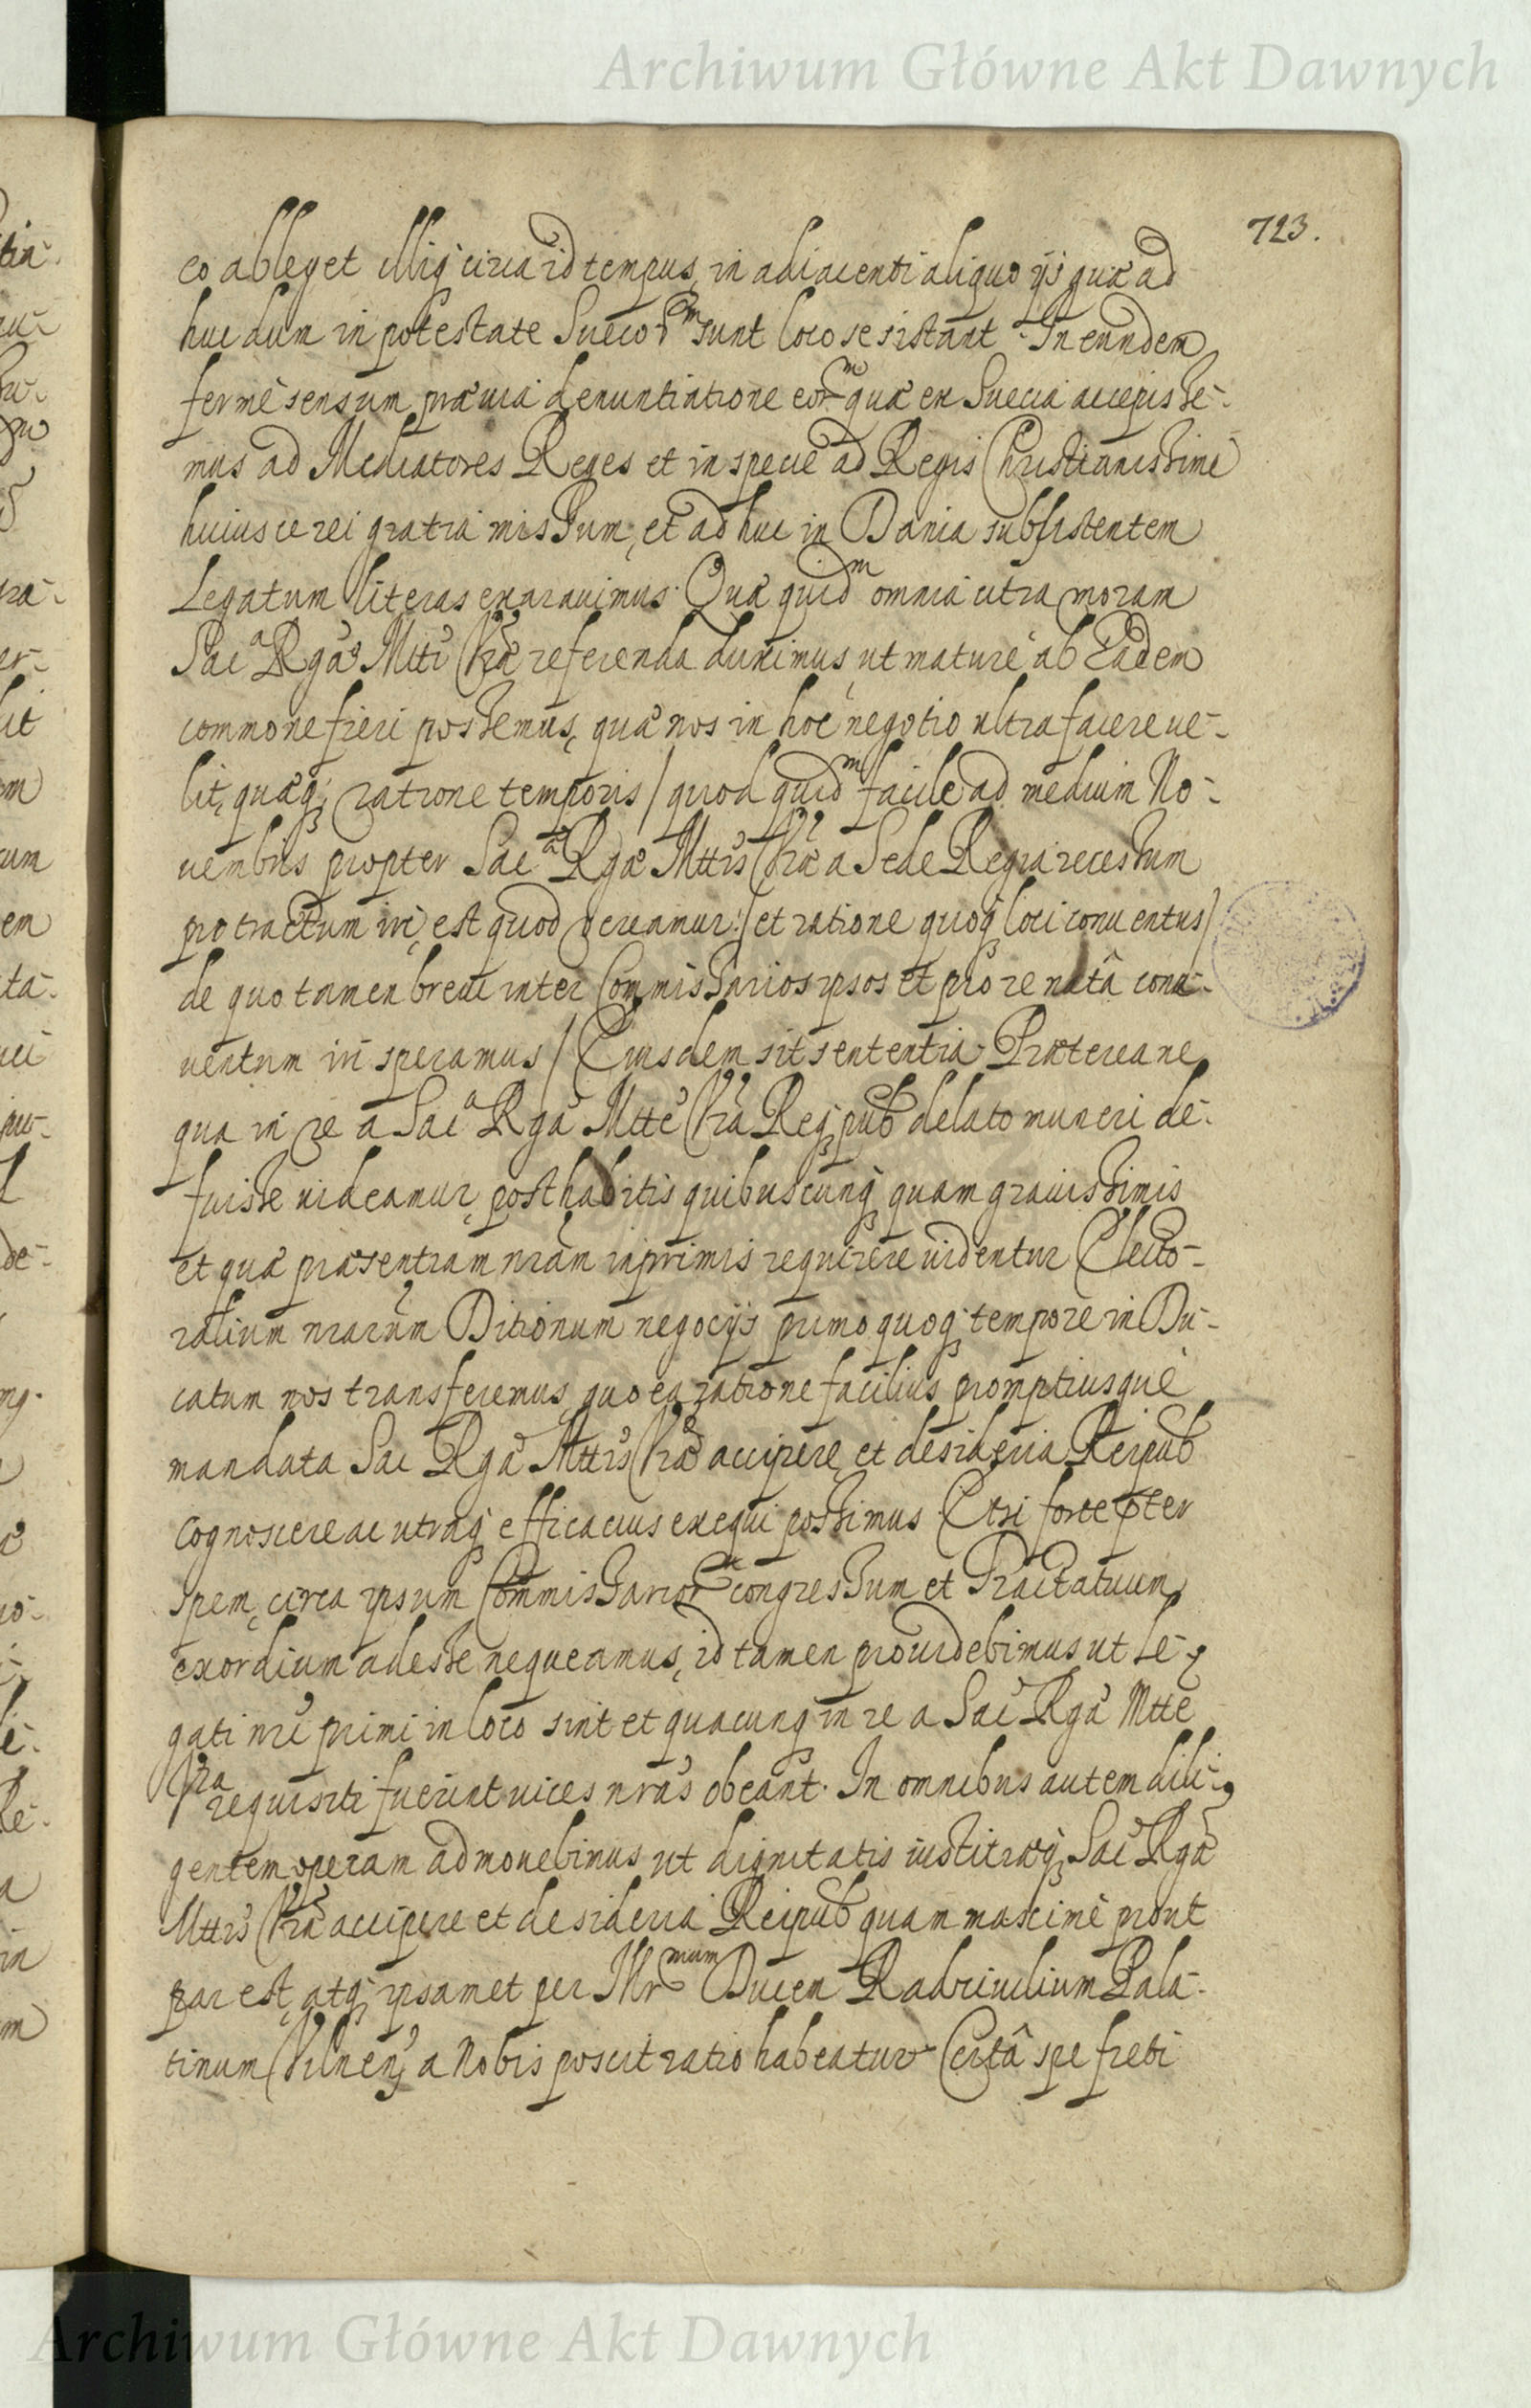 Archiwum Główne Akt Dawnych
723.
eo ableget illiq; circa id tempus, in adiacenti aliquo ijs quæ ad
huc dum in potestate Suecor^m sunt loco se sistant. In eundem
fermè sensum præuia denuntiatione eor^m quæ ex Suecia accepisse-
mus ad Mediatores Reges et in specie ad Regis Christianissimi
huiusce rei gratia missum, et ad huc in Dania subsistentem
Legatum literas exarauimus. Quæ quid^m omnia citra moram
Sac^a Rgæ Mtti Vræ referenda duximus, ut mature ab Eadem
commonefieri possemus, quæ nos in hoc negotio ultra facere ue-
lit, quæq; ratione temporis / quod quid^m facile ad medium No-
uembris propter Sac^a Rgæ Mttis Vræ a Sede Regia recessum
protractum iri, est quod vereamur:/ et ratione quoq; loci conuentus /
de quo tamen breui inter Commissarios ipsos et pro re natâ con-
uentum iri speramus / Eiusdem sit sententia. Præterea ne
qua in re a Sac^a Rga Mtte Vra Reiq; pub delato muneri de-
fuisse uideamur, posthabitis quibuscunq; quam grauissimis
et quæ præsentiam nram inprimis requirere uidentur Electo-
ralium nrarum Ditionum negocijs primo quoq; tempore in Du-
catum nos transferemus, quo ea ratione facilius promptiusque
mandata Sac Rgæ Mttis Vræ accipere et desideria Reipub
cognoscere ac utraq; efficacius exequi possimus. Etsi forte pter
spem, circa ipsum Commissarior congressum et Tractatuum
exordium adesse nequeamus, id tamen prouidebimus ut Le-
gati nri primi in loco sint et quacunq; in re a Sac Rga Mtte
Vra requisiti fuerint uices nras obeant. In omnibus autem dili-
gentem operam admouebimus ut dignitatis iustitiæq; Sac Rgæ
Mttis Vræ accipere et desideria Reipub quam maximè prout
par est, atq; ipsamet per Illr^mum Ducem Radziuilium Pala-
tinum Vilnen; a Nobis poscit ratio habeatur. Certâ spe freti
Archiwum Główne Akt Dawnych